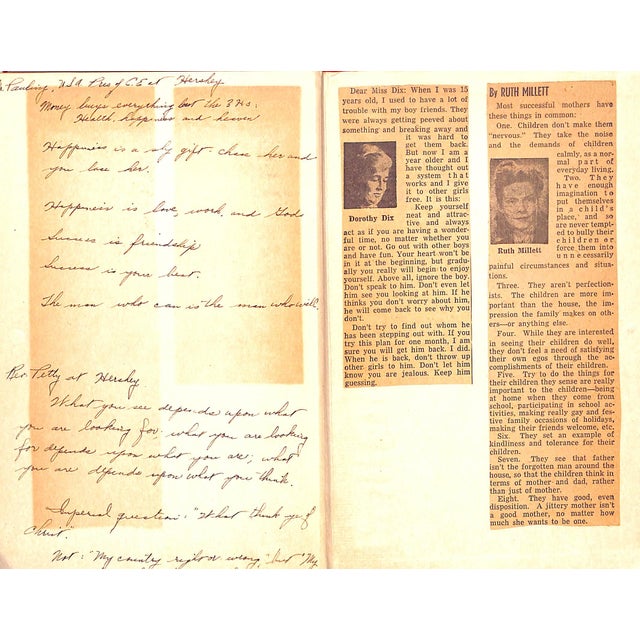 Pauling, USA Pres of C.E at Hershey
Money buys everything but the 3 Hs:
Health, happiness and heaven
Happiness is a shy gift chase her and
you lose her.
Happiness is love, work, and God
Success is friendship
Success is your best.
The man who can is the man who will.
Rev Petty at Hershey
What you see depends upon what
you are looking for. what you are looking
for depends upon what you are; what
you are depends upon what you think.
Imperial question: "What think ye of
Christ".
Not: "My country right or wrong," but "My
Dear Miss Dix: When I was 15
years old, I used to have a lot of
trouble with my boy friends. They
were always getting peeved about
something and breaking away and
it was hard to
get them back.
But now I am a
year older and I
have thought out
a system that
works and I give
it to other girls
free. It is this:
Keep yourself
neat and attrac-
tive and always
Dorothy Dix
act as if you are having a wonder-
ful time, no matter whether you
are or not. Go out with other boys
and have fun. Your heart won't be
in it at the beginning, but gradu-
ally you really will begin to enjoy
yourself. Above all, ignore the boy.
Don't speak to him. Don't even let
him see you looking at him. If he
thinks you don't worry about him,
he will come back to see why you
don't.
Don't try to find out whom he
has been stepping out with. If you
try this plan for one month, I am
sure you will get him back. I did.
When he is back, don't throw up
other girls to him. Don't let him
know you are jealous. Keep him
guessing.
By RUTH MILLETT
Most successful mothers have
these things in common:
One. Children don't make them
"nervous." They take the noise
and the demands of children
calmly, as a nor-
mal part of
everyday living.
Two. They
have enough
imagination to
put themselves
in a child's
place, and so
are never tempt-
ed to bully their
children or
force them into
unnecessarily
Ruth Millett
painful circumstances and situa-
tions.
Three. They aren't perfection-
ists. The children are more impor-
tant than the house, the impres-
sion the family makes on oth-
ers—or anything else.
Four. While they are interested
in seeing their children do well,
they don't feel a need of satisfying
their own egos through the ac-
complishments of their children.
Five. Try to do the things for
their children they sense are really
important to the children—being
at home when they come from
school, participating in school ac-
tivities, making really gay and fes-
tive family occasions of holidays,
making their friends welcome, etc.
Six. They set an example of
kindliness and tolerance for their
children.
Seven. They see that father
isn't the forgotten man around the
house, so that the children think in
terms of mother and dad, rather
than just of mother.
Eight. They have good, even
disposition. A jittery mother isn't
a good mother, no matter how
much she wants to be one.